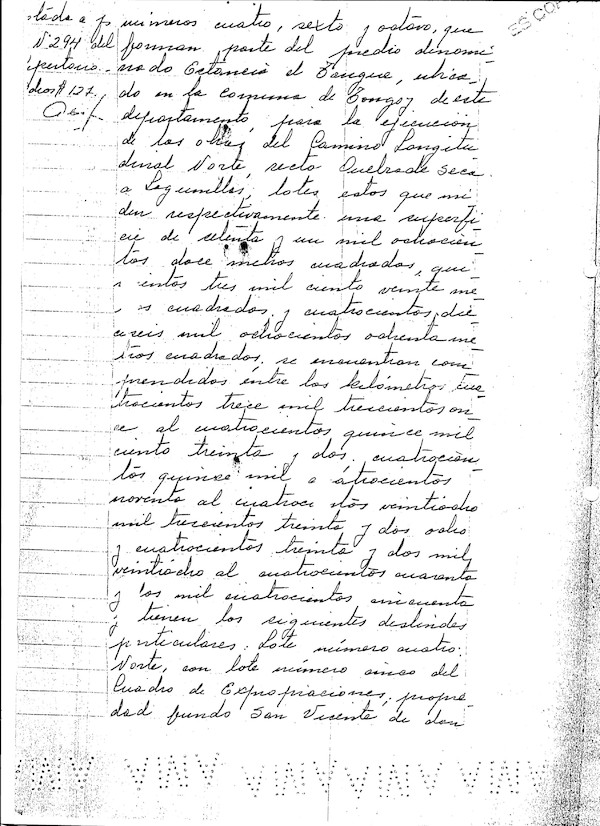 ES COP
N° 294 del
números cuatro, sexto y octavo, que
forman parte del predio denomi-
nado Estancia el Tangue, ubica-
do en la comuna de Tongoy de este
departamento, para la ejecución
de las obras del Camino Longitu-
dinal Norte, sector Quebrada Seca
a Lagunillas, lotes estos que mi-
den respectivamente una superfi-
cie de setenta y un mil ochocien-
tos doce metros cuadrados, qui-
ientos tres mil ciento veinte me-
os cuadrados, y cuatrocientos die-
ciseis mil ochocientos ochenta me-
tros cuadrados, se encuentran com-
prendidos entre los kilómetros cua-
trocientos trece mil trescientos on-
ce al cuatrocientos quince mil
ciento treinta y dos, cuatrocien-
tos quince mil c atrocientos
noventa al cuatroci ntos veintiocho
mil trescientos treinta y dos ocho
y cuatrocientos treinta y dos mil
veintiocho al cuatrocientos cuarenta
y os mil cuatrocientos cincuenta
y tienen los siguientes deslindes
particulares: Lote número cuatro:
Norte, con lote número cinco del
Cuadro de Expropiaciones, propie-
dad fundo San Vicente de don